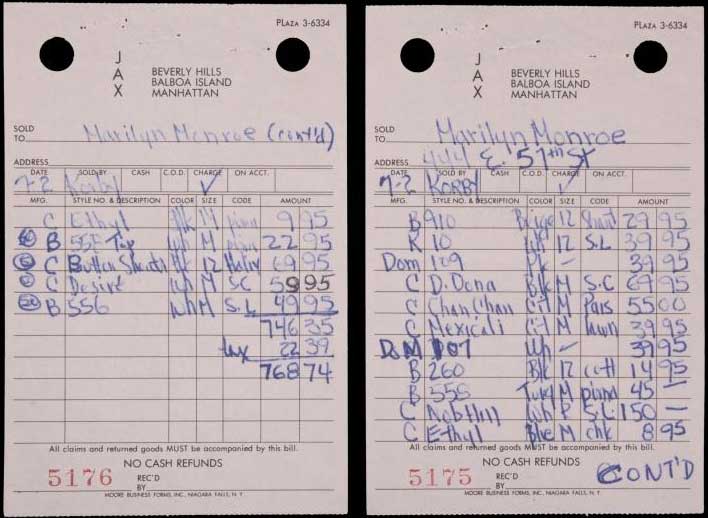 PLAZA 3-6334
JAX
BEVERLY HILLS
BALBOA ISLAND
MANHATTAN
SOLD
TO Marilyn Monroe (cont'd)
ADDRESS
DATE SOLD BY CASH C.O.D. CHARGE ON ACCT.
7-2 Korby ✓
MFG. STYLE NO. & DESCRIPTION COLOR SIZE CODE AMOUNT
C Ethyl M 9 95
B 555 Top Wh M 22 95
C Button Shorts 12 69 95
C Desire Wh M SC 59 95
B 556 Wh M S.L 49 95
746 35
tax 22 39
768 74
All claims and returned goods MUST be accompanied by this bill.
NO CASH REFUNDS
5176 REC'D
BY
MOORE BUSINESS FORMS, INC., NIAGARA FALLS, N. Y.
PLAZA 3-6334
JAX
BEVERLY HILLS
BALBOA ISLAND
MANHATTAN
SOLD
TO Marilyn Monroe
ADDRESS 444 E. 57th St
DATE SOLD BY CASH C.O.D. CHARGE ON ACCT.
7-2 KORBY ✓
MFG. STYLE NO. & DESCRIPTION COLOR SIZE CODE AMOUNT
B 910 Beige 12 Short 29 95
K 10 Wh 12 S.L 39 95
Dom 109 Pk — 39 95
C D. Dona Blk M S.C 69 95
C Chan Chan M 55 00
C Mexicali M 39 95
Dom 107 Wh — 39 95
B 260 Blk 12 14 95
B 555 M 45 —
C Nob Hill Wh S.L 150 —
C Ethyl Blue M chk 8 95
All claims and returned goods MUST be accompanied by this bill.
NO CASH REFUNDS
5175 REC'D CONT'D
BY
MOORE BUSINESS FORMS, INC., NIAGARA FALLS, N. Y.